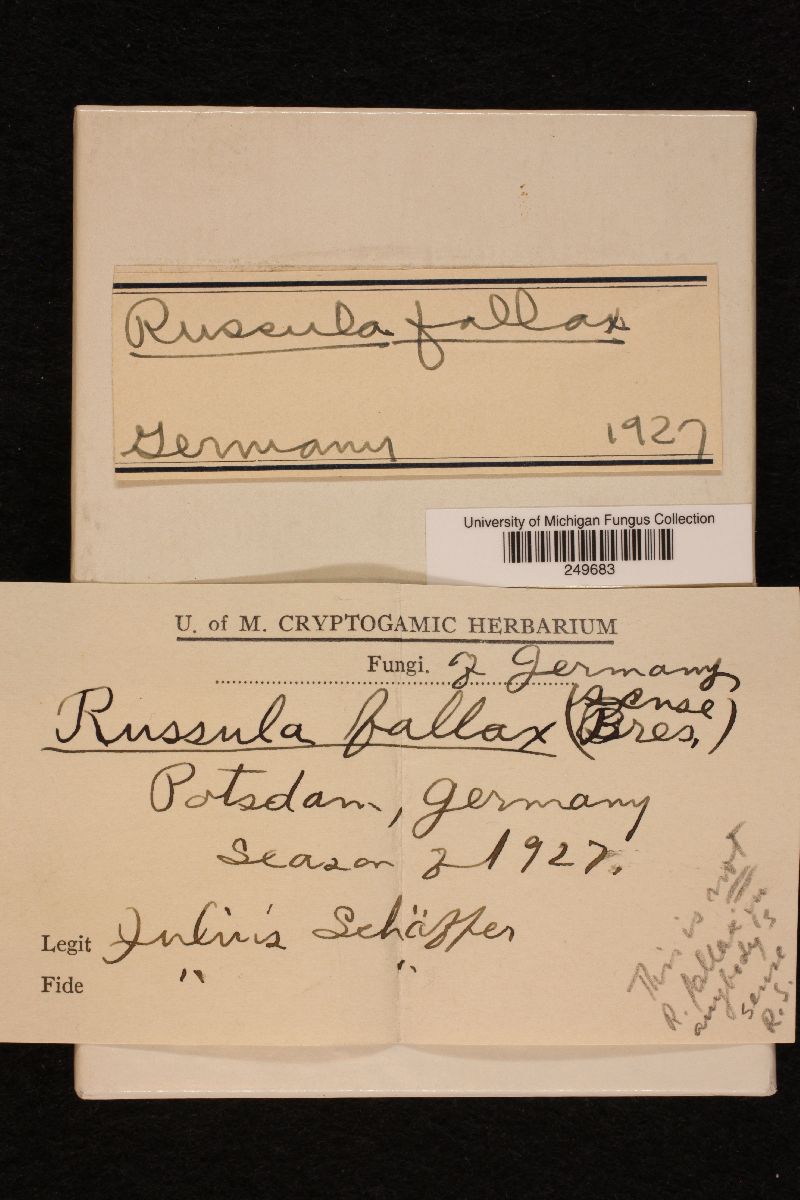 Russula fallax
Germany 1927
University of Michigan Fungus Collection
249683
U. of M. CRYPTOGAMIC HERBARIUM
Fungi. of Germany
Russula fallax (sense Bres.)
Potsdam, Germany
Season of 1927.
Legit Julius Schäffer
Fide " "
This is not
R. fallax in
anybody's
sense
R.S.